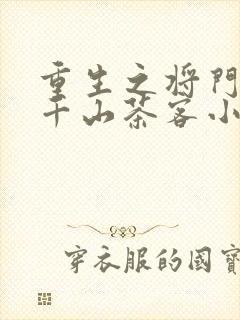 重生之将门
千山茶客小
穿衣服的國寶